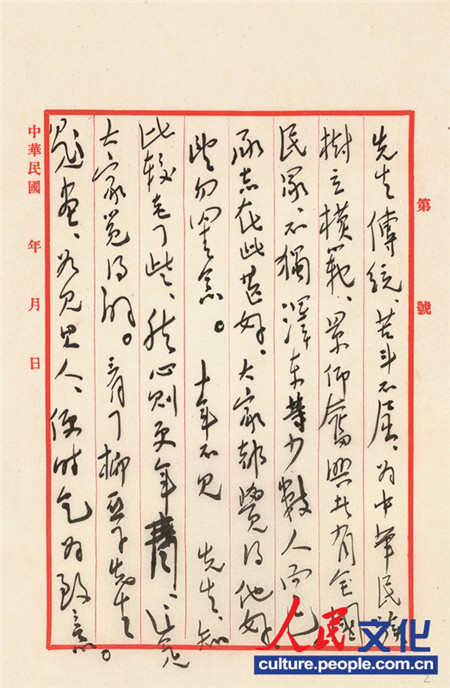 第 號
先生傳統、苦斗不屈、为中華民族
樹立模範、景仰奮興者有全國
民眾、不獨澤東等少數人而已
承志在此甚好、大家都覺得他好、
望勿罣念。 十年不見 先生、知
比較老了些、然心則更年青、這是
大家覺得的。看了柳亞子先生
題画、如見其人、便時乞为致意。
中華民國 年 月 日
人民文化
culture.people.com.cn
2